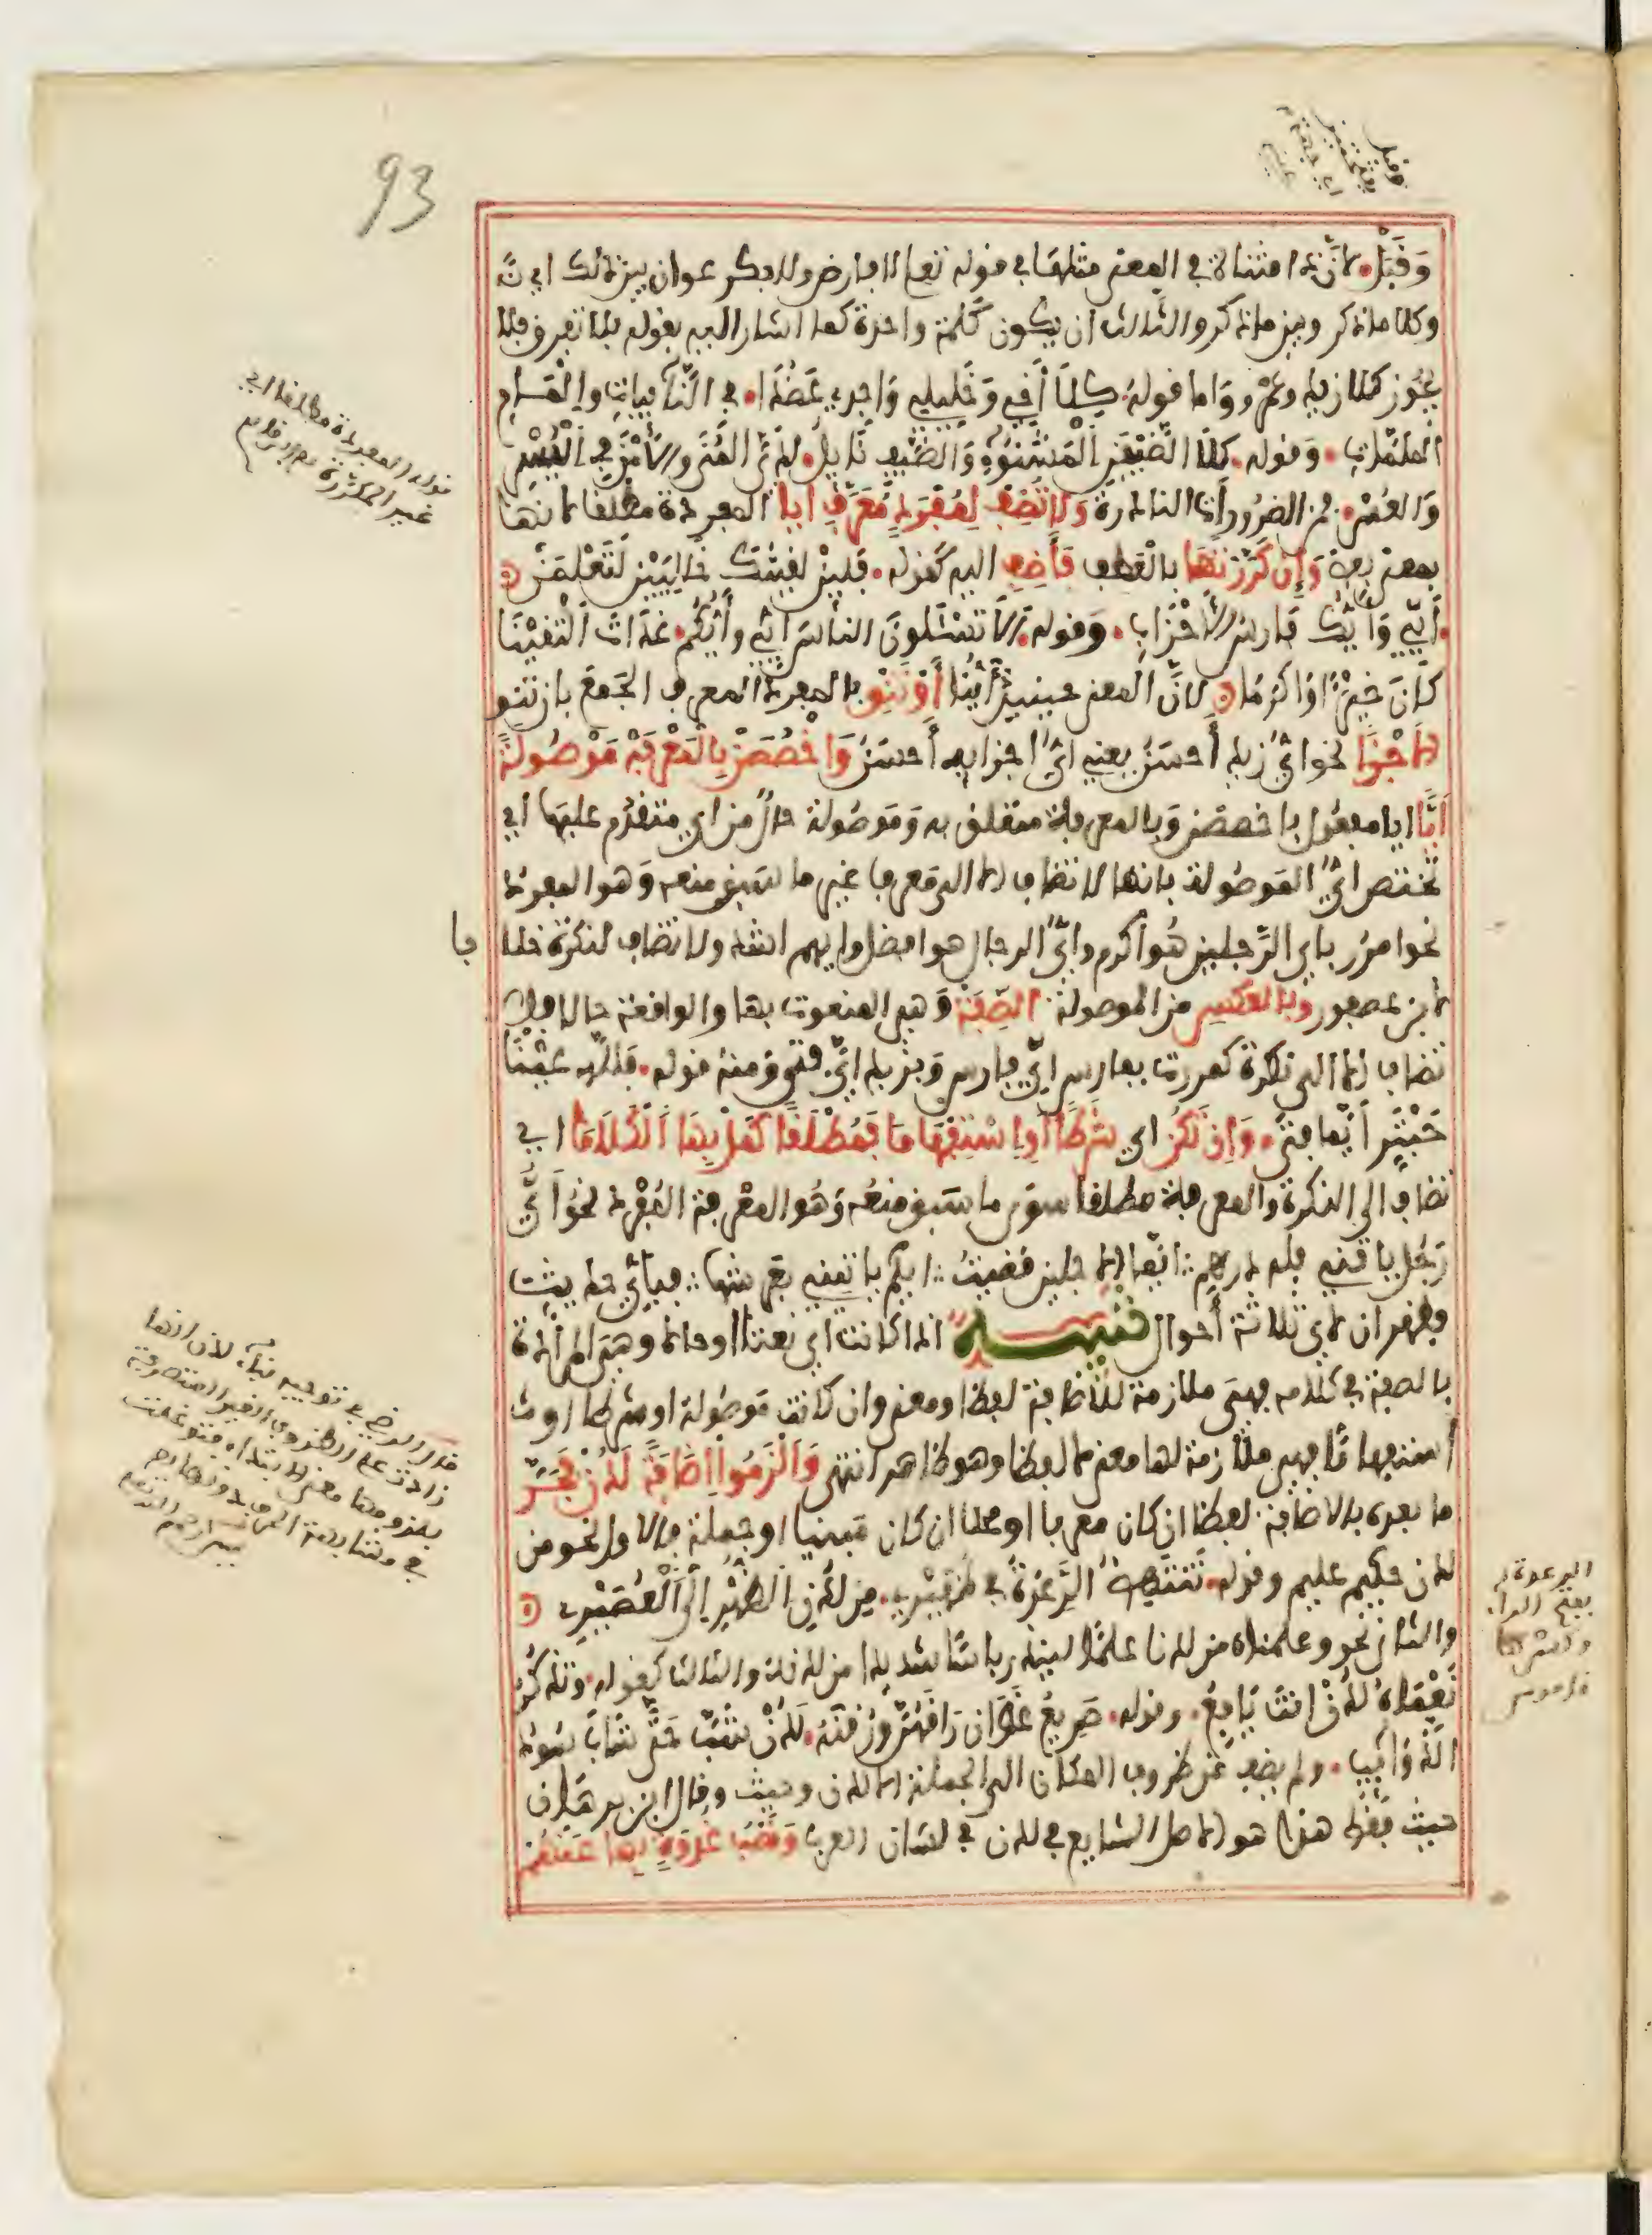 93
وَقَبَلْ لأن ذا مثناة في المعنى مثلها في قوله تعالى لا فارض ولا بكر عوان بين ذلك اي
وكلا ما ذكر وبين ما ذكر والثالث ان يكون كلمة واحدة كما اشار اليه بقوله بلا تفرق فلا
يجوز كلا زيد وعمرو واما قوله كلا أخي وخليلي واجدي عضدا في النائبات وإلمام
الملمات وقوله كلا الضيفن المشنوء والضيف نايل لدي المنى والأمن في اليسر
والعسر فمن الضرورات النادرة ولا تضف لمفرد معرف ايا المفردة مطلقا لانها
بمعنى بعض وإن كررتها بالعطف فأضف اليه كقوله فلين لقيتك خاليين لتعلمن
أيي وأيك فارس الأحزاب وقوله ألا تسئلون الناس أيي وأيكم غداة التقينا
كان خيرا واكرما لان المعنى حينيذ أينا أو تنو بالمفرد المعرف الجمع بان تنو
الاجزا نحو اي زيد أحسن يعني اي اجزايه أحسن واخصصن بالمعرفة موصولة
أيا ايا مفعول باخصصن وبالمعرفة متعلق به وموصولة حال من اي متقدم عليها اي
تختص اي الموصولة بانها لا تضاف الا الى معرفة غير ما سبق منعه وهو المفرد
نحو امرر باي الرجلين هو أكرم واي الرجال هو افضل وايهم اشد ولا تضاف لنكرة خلا
فا
لابن عصفور وبالعكس من الموصولة الصفة وهي المنعوت بها والواقعة حالا فلا
تضاف الا الى نكرة كمررت بفارس اي فارس وبزيد اي فتى ومنه قوله فلله عينا
حبتر أيما فتى وإن تكن اي شرطا أو استفهاما فمطلقا كمل بها الكلاما اي
تضاف الى النكرة والمعرفة مطلقا سوى ما سبق منعه وهو المعرفة المفرد نحو أي
رجل ياتني فله درهم ايما الاجلين قضيت ايكم ياتيني بعرشها فبأي حديث
فظهر ان لاي ثلاثة أحوال تنبيه اذا كانت اي نعتا او حالا وهي المرادة
بالصفة في كلامه فهي ملازمة للاضافة لفظا ومعنى وان كانت موصولة او شرطا او
استفهاما فهي ملازمة لها معنى لا لفظا وهو ظاهر انتهى وألزموا إضافة لدن فجر
ما بعده بالاضافة لفظا ان كان معربا او محلا ان كان مبنيا او جملة فالاول نحو من
لدن حكيم عليم وقوله تنتهض الرعدة في ظهيري من لدن الظهر إلى العصير
والثاني نحو وعلمناه من لدنا علما لينذر باسا شديدا من لدنه والثالث كقوله وتذكر
نعماه لدن انت يافع وقوله صريع غوان راقهن ورقنه لدن شب حتى شاب سود
الذوائب ولم يضف من ظروف المكان الى الجملة الا لدن وحيث وقال ابن برهان
حيث فقط هذا هو الاصل الشايع في لدن في لسان العرب ونصب غدوة بها عنهم
قوله المفردة مطلقا اي
غير المكررة
الرعدة
بفتح الراء
وكسرها
قاموس